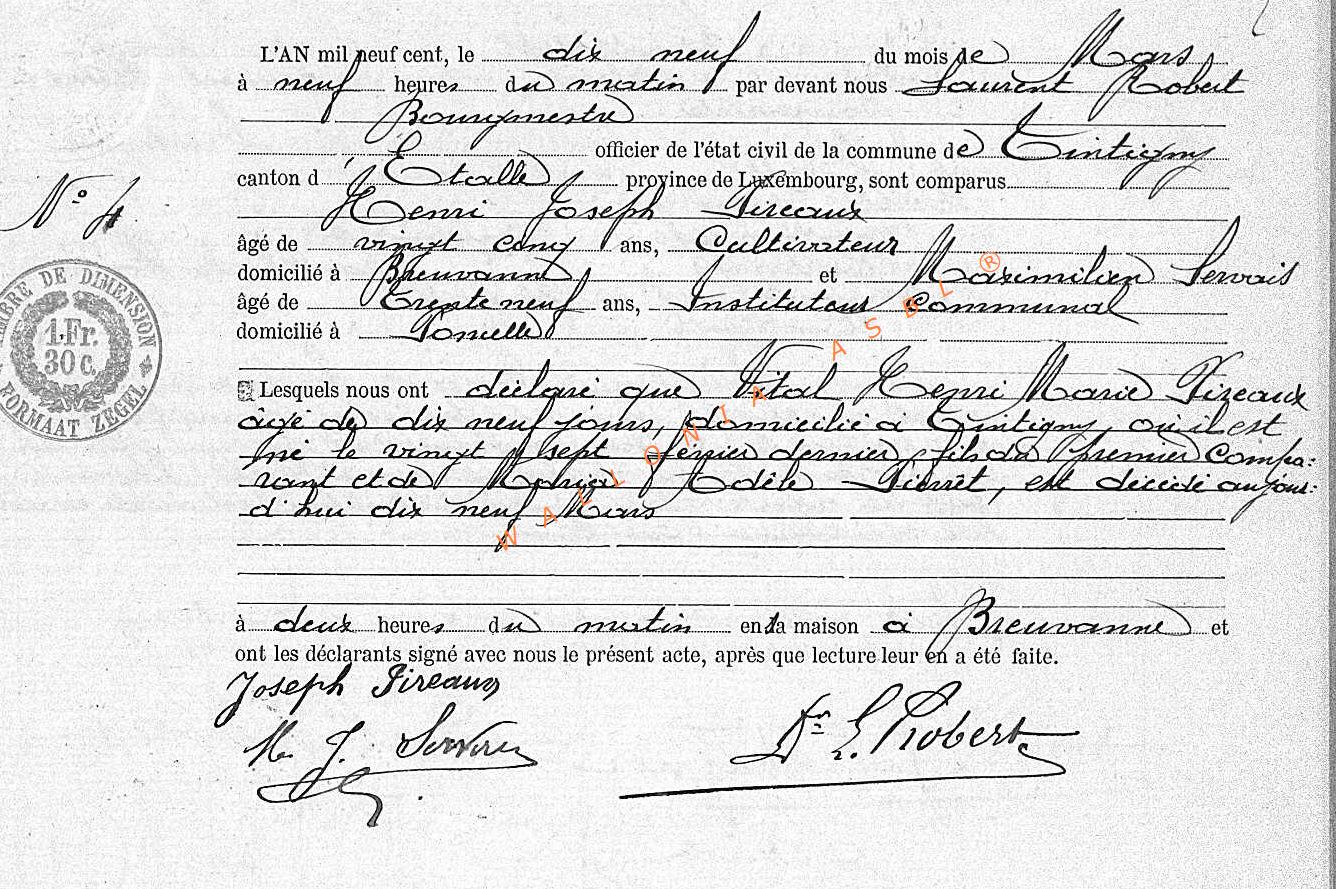 L'AN mil neuf cent, le dix neuf du mois de Mars
à neuf heures du matin par devant nous Laurent Robert
Bourgmestre
officier de l'état civil de la commune de Tintigny
canton d'Etalle province de Luxembourg, sont comparus
Henri Joseph Pireaux
N° 4
âgé de vingt cinq ans, Cultivateur
domicilié à Breuvanne et Maximilien Servais
âgé de Trente neuf ans, Instituteur communal
domicilié à
TIMBRE DE DIMENSION
1 Fr.
30 c.
FORMAAT ZEGEL
Lesquels nous ont déclaré que Vital Henri Marie Pireaux
âgé de dix neuf jours, domicilié à Tintigny, où il est
né le vingt sept février dernier, fils du premier compa:
rant et de Maria Adèle Pierrêt, est décédé aujour:
d'hui dix neuf Mars
WALLONIA ASBL ®
à deux heures du matin en la maison à Breuvanne et
ont les déclarants signé avec nous le présent acte, après que lecture leur en a été faite.
Joseph Pireaux
M. J. Servais
Dr L. Robert